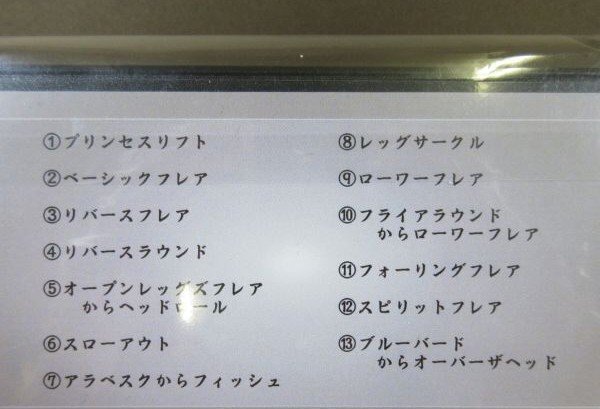 ①プリンセスリフト
②ベーシックフレア
③リバースフレア
④リバースラウンド
⑤オープンレッグズフレア
からヘッドロール
⑥スローアウト
⑦アラベスクからフィッシュ
⑧レッグサークル
⑨ローワーフレア
⑩フライアラウンド
からローワーフレア
⑪フォーリングフレア
⑫スピリットフレア
⑬ブルーバード
からオーバーザヘッド